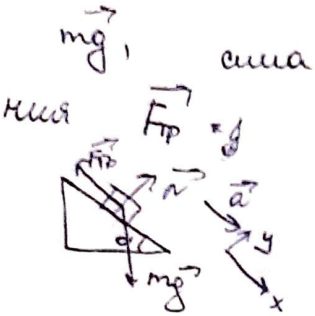 mg⃗, сила
ния F⃗тр
F⃗тр N⃗ a⃗
α y
mg⃗ x